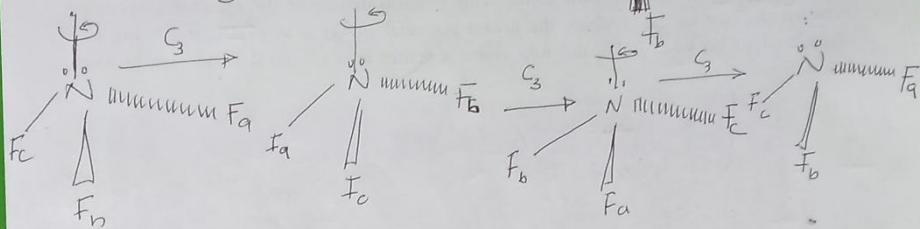 C3
N
Fa
Fc
Fb
C3
N
Fb
Fa
Fc
C3
Fb
N
Fc
Fb
Fa
C3
N
Fa
Fc
Fb